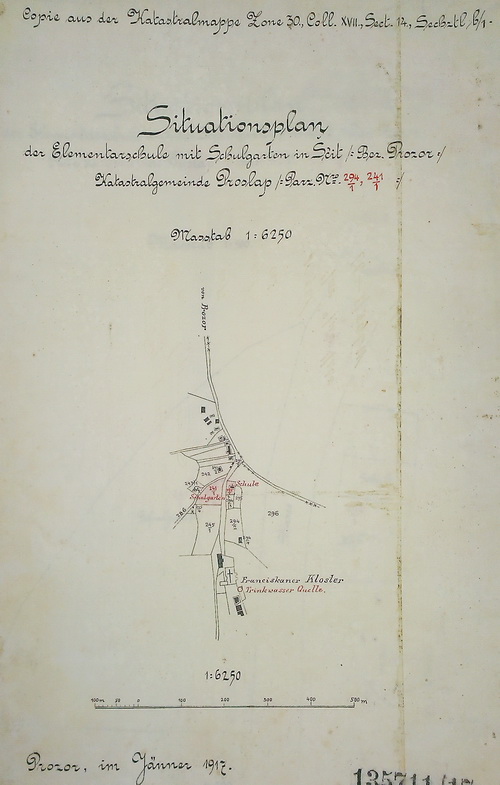 Copie aus der Katastralmappe Zone 30, Coll. XVII., Sect. 14, Sechztl, b/1-
Situationsplan
der Elementarschule mit Schulgarten in Šćit /: Bez. Prozor :/
Katastralgemeinde Proslap /: Parz. Nro. 294/1, 241/1 :/
Masstab 1:6250
von Prozor
242
243/1
Schule
241/1
Schulgarten
286
245/1
294/1
296
Franciskaner Kloster
Trinkwasser Quelle.
1:6250
100m 50 0 100 200 300 400 500 m
Prozor, im Jänner 1917.
135711/17